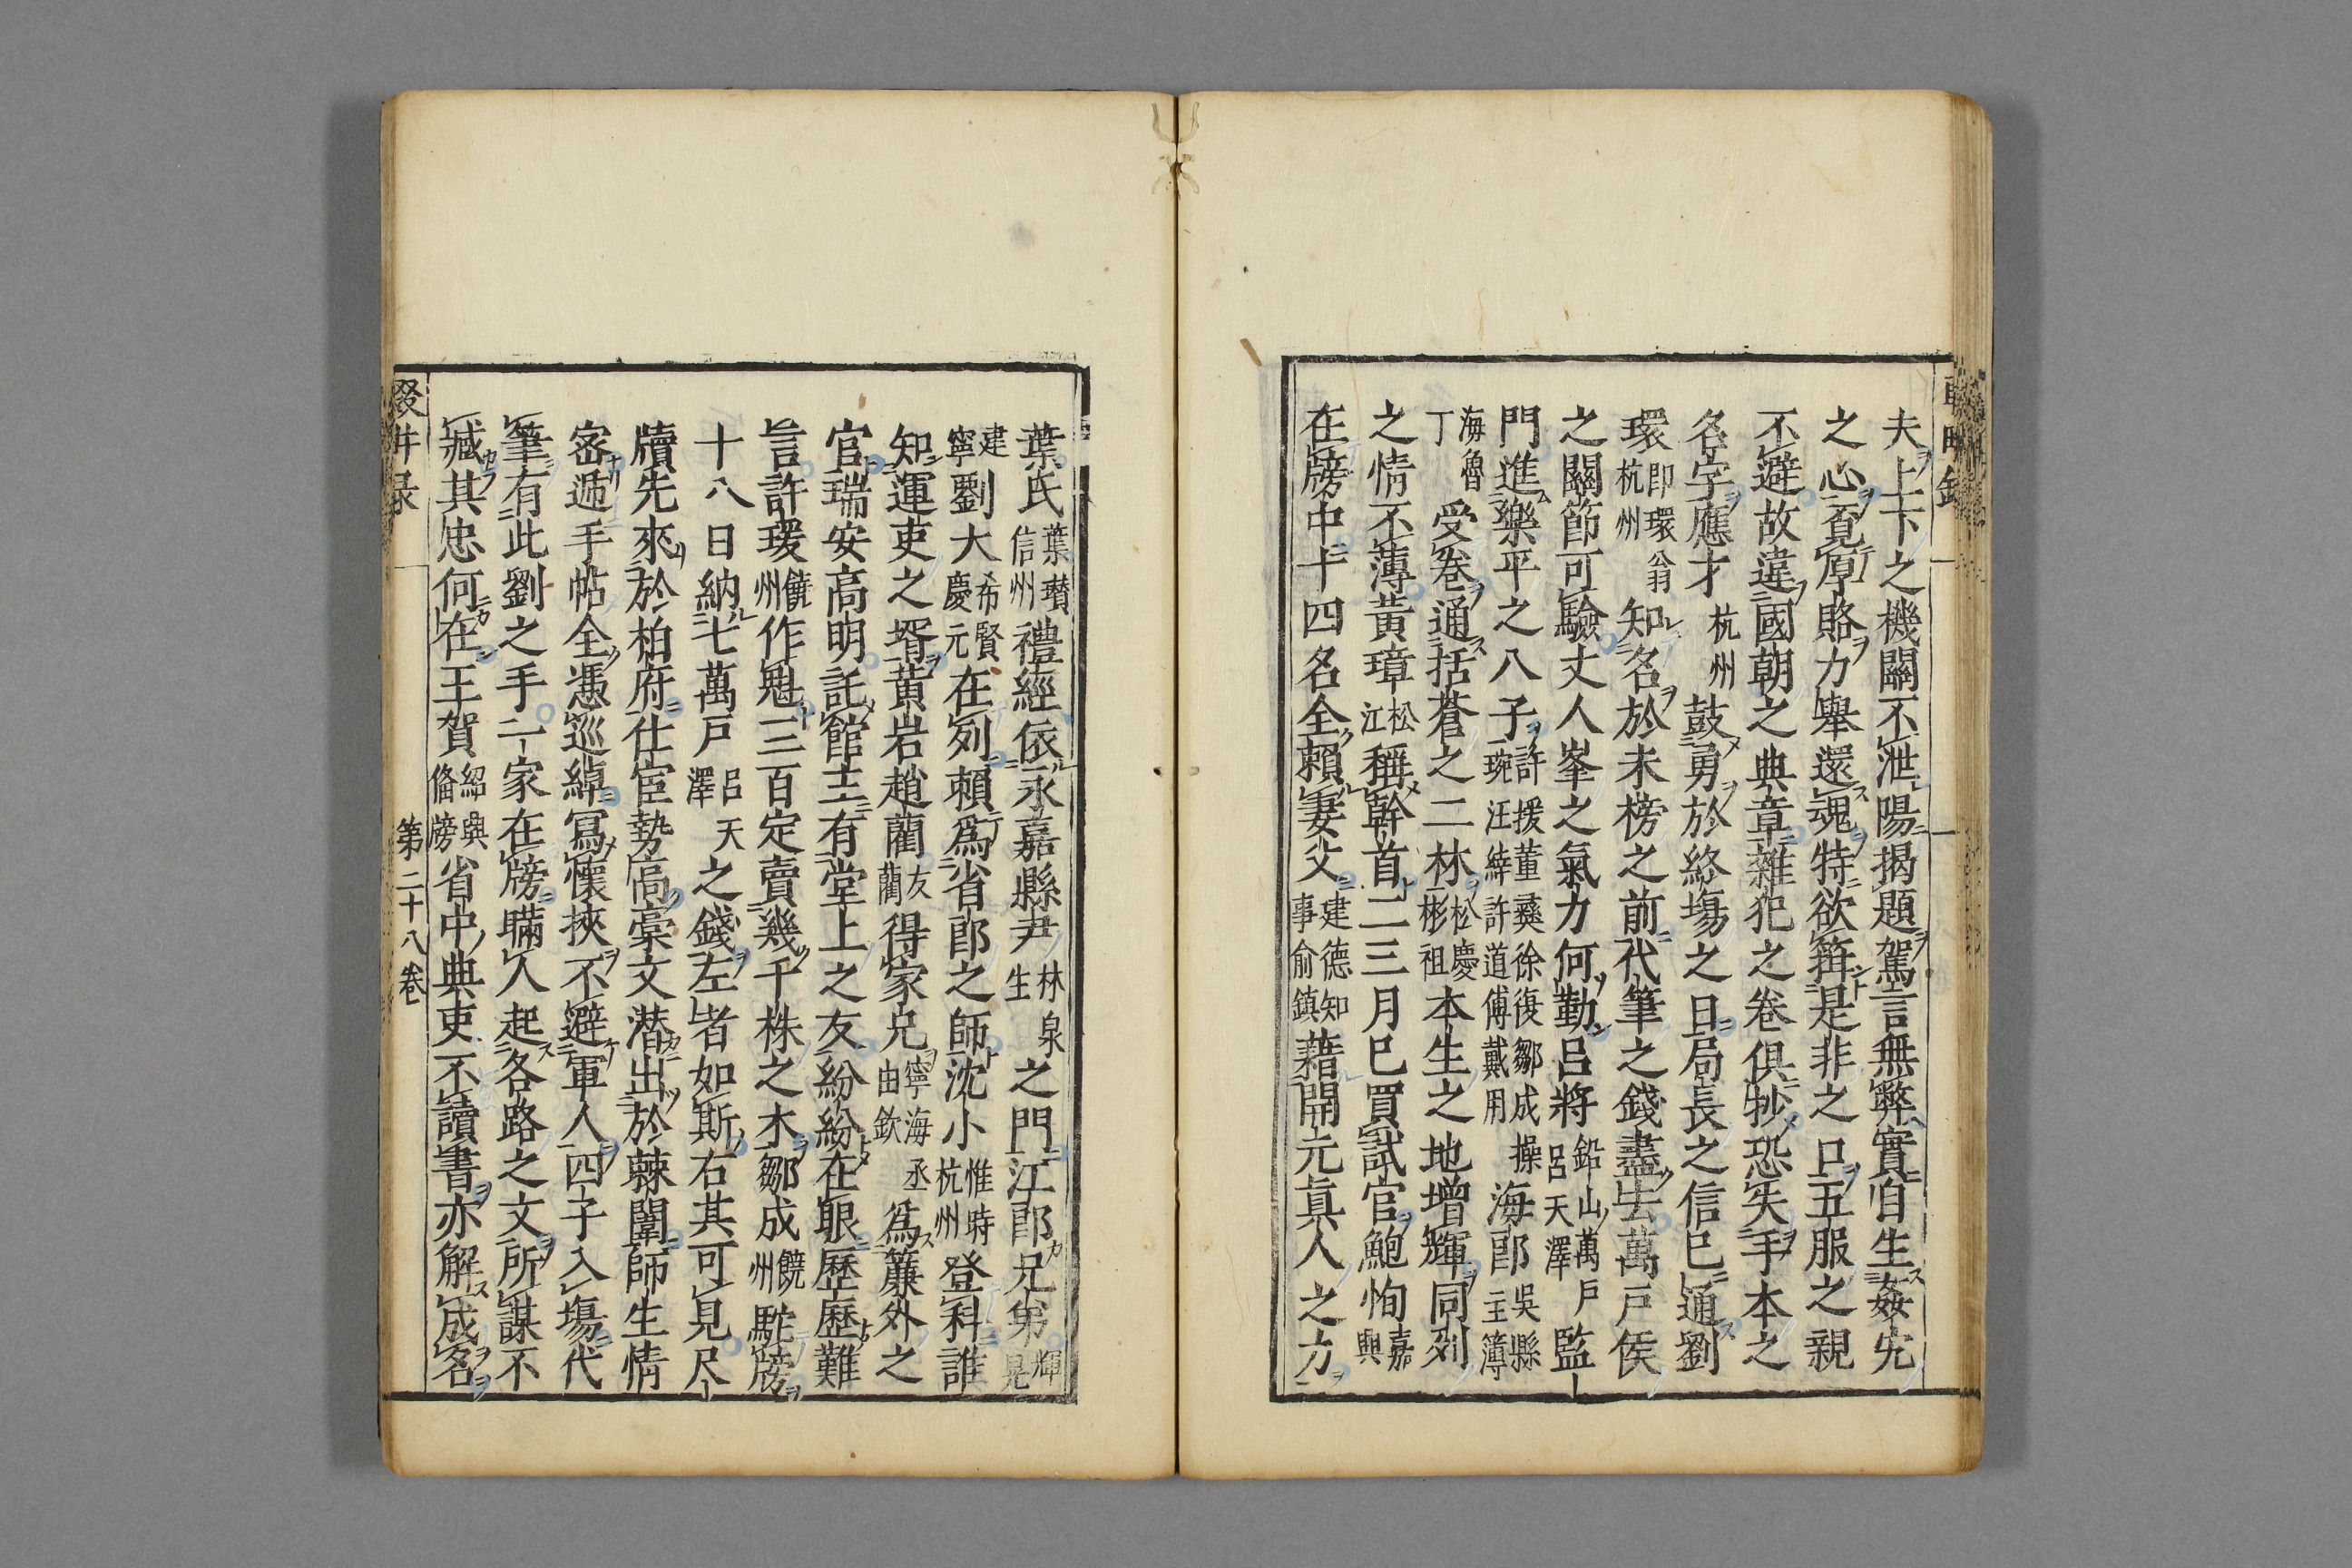 夫上下之機關不泄陽揭題駕言無弊實自生姦宄
之心覔厚賂力舉還魂特欲箝是非之口五服之親
不避故違國朝之典章雜犯之卷俱抄恐失手本之
名字應才杭州鼓勇於終場之日局長之信已通劉
環即環翁杭州知名於未榜之前代筆之錢盡去萬戸侯
之關節可驗丈人峯之氣力何勤呂將鉛山萬戸呂天澤監
門進樂平之八子許援董彞徐復鄒成操琬汪緈許道傅戴用海郎吳縣主簿
海魯丁受卷通括蒼之二林松慶彬祖本生之地增輝同列
之情不薄黃璋松江稱幹首二三月已買試官鮑恂嘉興
在牓中十四名全賴妻父建德知事俞鎮藉開元真人之方
葉氏葉瓚信州禮經依永嘉縣尹林泉生之門江郎兄第輝晃
建寧劉大希賢慶元在列賴爲省郎之師沈小惟時杭州登科誰
知運吏之壻黃岩趙藺友藺得家兄寧海丞由欽爲簾外之
官瑞安高明託館主有堂上之友紛紛在眼歷歷難
言許瑗饒州作魁三百定賣幾千株之木鄒成饒州馳牓
十八日納七萬戸呂天澤之錢左者如斯右其可見尺
牘先來於柏府仕宦勢高稾文潛出於棘闈師生情
密遞手帖全憑巡綽寫懷挾不避軍人四子入場代
筆有此劉之手二家在牓瞞人起各路之文所謀不
臧其忠何在王賀紹興脩牓省中典吏不讀書亦解成名
輟畊録 第二十八卷